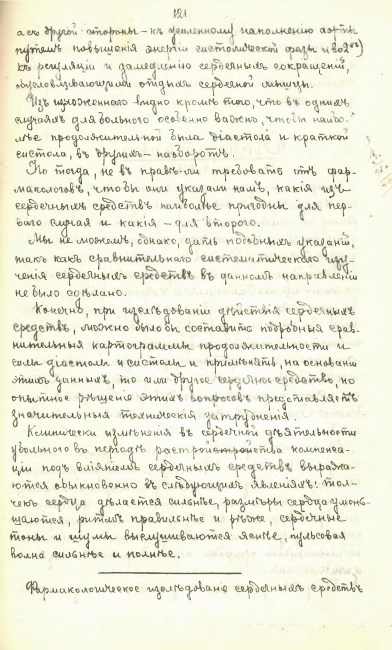 121
а съ другой стороны – къ усиленному наполненію аорты
путемъ повышенія энергіи систолической фазы и во 2хъ)
къ регуляціи и замедленію сердечныхъ сокращеній,
обусловливающими отдыхъ сердечной мышцы.
Изъ изложеннаго видно кромѣ того, что въ однихъ
случаяхъ для больного особенно важно, чтобы наибо-
лѣе продолжительной была діастола и краткой
систола, въ другихъ – наоборотъ.
Но тогда, не въ правѣ-ли требовать отъ фар-
макологовъ, чтобы они указали намъ, какія изъ
сердечныхъ средствъ наиболѣе пригодны для пер-
ваго случая и какія – для второго.
Мы не можемъ, однако, дать подобныхъ указаній,
такъ какъ сравнительнаго систематическаго изу-
ченія сердечныхъ средствъ въ данномъ направленіи
не было сдѣлано.
Конечно, при изслѣдованіи дѣйствія сердечныхъ
средствъ, можно было бы составить подробныя срав-
нительныя картограммы продолжительности и
силы діастолы и систолы и примѣнять, на основаніи
этихъ данныхъ, то или другое сердечное средство, но
опытное рѣшеніе этихъ вопросовъ представляетъ
значительныя техническія затрудненія.
Клинически измѣненія въ сердечной дѣятельности
у больного въ періодѣ разстройства компенса-
ціи подъ вліяніемъ сердечныхъ средствъ выража-
ются обыкновенно въ слѣдующихъ явленіяхъ: тол-
чекъ сердца дѣлается сильнѣе, размѣры сердца умень-
шаются, ритмъ правильнѣе и рѣже, сердечные
тоны и шумы выслушиваются яснѣе, пульсовая
волна сильнѣе и полнѣе.
Фармакологическое изслѣдованіе сердечныхъ средствъ